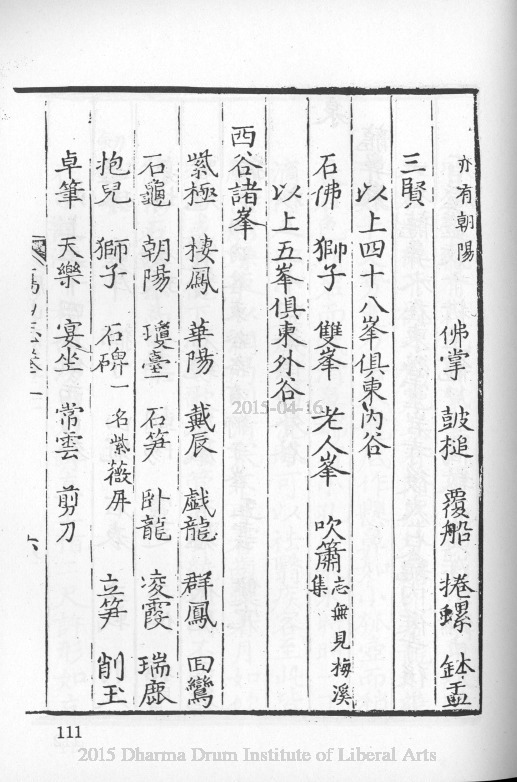 亦有朝陽 佛掌 鼓槌 覆船 捲螺 鉢盂
三賢
以上四十八峯俱東內谷
石佛 獅子 雙峯 老人峯 吹簫志無見梅溪集
以上五峯俱東外谷
西谷諸峯
紫極 棲鳳 華陽 戴辰 戲龍 群鳳 回鸞
石龜 朝陽 瓊臺 石笋 卧龍 凌霞 瑞鹿
抱兒 獅子 石碑一名紫薇屏 立笋 削玉
卓筆 天樂 宴坐 常雲 剪刀
六
111
2015-04-16
2015 Dharma Drum Institute of Liberal Arts